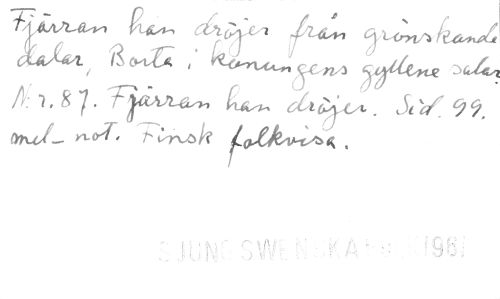 Fjärran han dröjer från grönskande
dalar, Borta i konungens gyllene salar.
N:r. 87. Fjärran han dröjer. Sid. 99.
mel-not. Finsk folkvisa.
SJUNG SWENSKA FOLK 1961